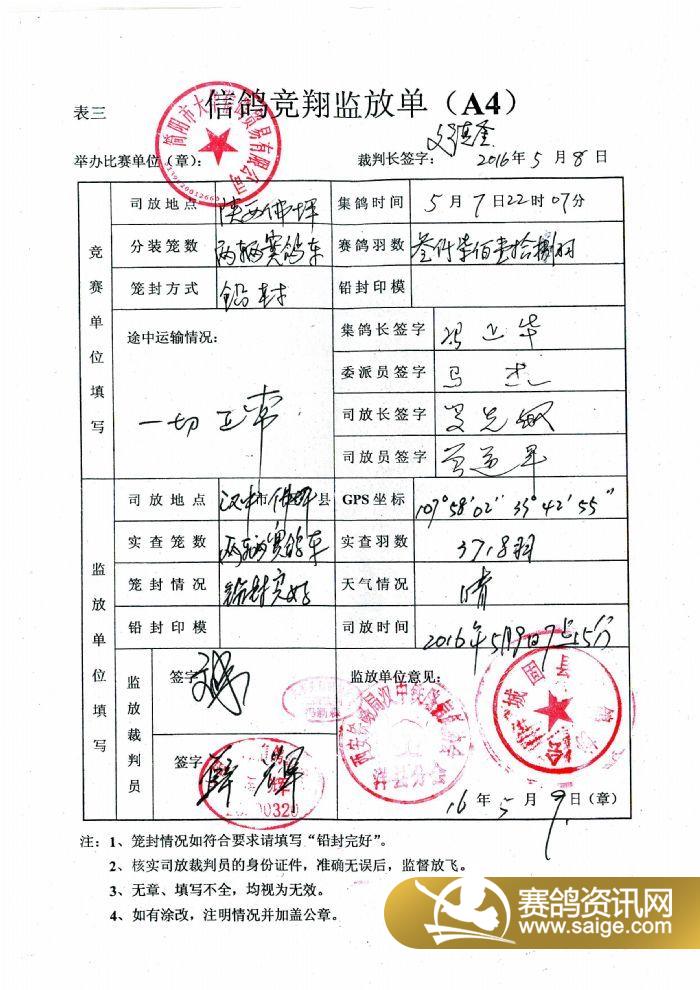 信鸽竞翔监放单（A4）
表三
举办比赛单位（章）： 裁判长签字： 2016年5月8日
竞赛单位填写
司放地点 陕西佛坪 集鸽时间 5月7日22时07分
分装笼数 两辆赛鸽车 赛鸽羽数 叁仟柒佰壹拾捌羽
笼封方式 铅封 铅封印模
途中运输情况： 一切正常
集鸽长签字
委派员签字 马杰
司放长签字
司放员签字
监放单位填写
司放地点 汉中市佛坪县 GPS坐标 107°58′02″ 33°42′55″
实查笼数 两辆赛鸽车 实查羽数 3718羽
笼封情况 铅封完好 天气情况 晴
铅封印模 司放时间 2016年5月9日7时15分
监放裁判员
签字
签字
监放单位意见：
城固县
洋县分会
16年5月9日（章）
注：1、笼封情况如符合要求请填写“铅封完好”。
2、核实司放裁判员的身份证件，准确无误后，监督放飞。
3、无章、填写不全，均视为无效。
4、如有涂改，注明情况并加盖公章。
赛鸽资讯网
www.saige.com